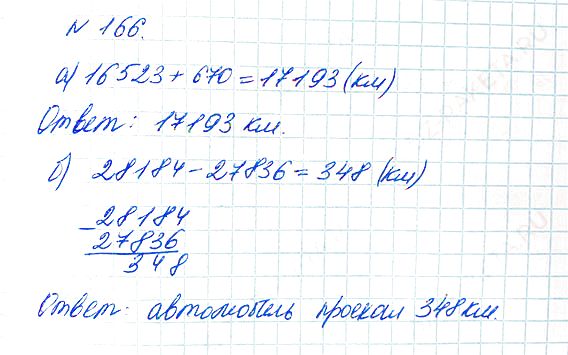 № 166.
а) 16523 + 670 = 17193 (км)
Ответ: 17193 км.
б) 28184 - 27836 = 348 (км)
- 28184
27836
348
Ответ: автомобиль проехал 348 км.